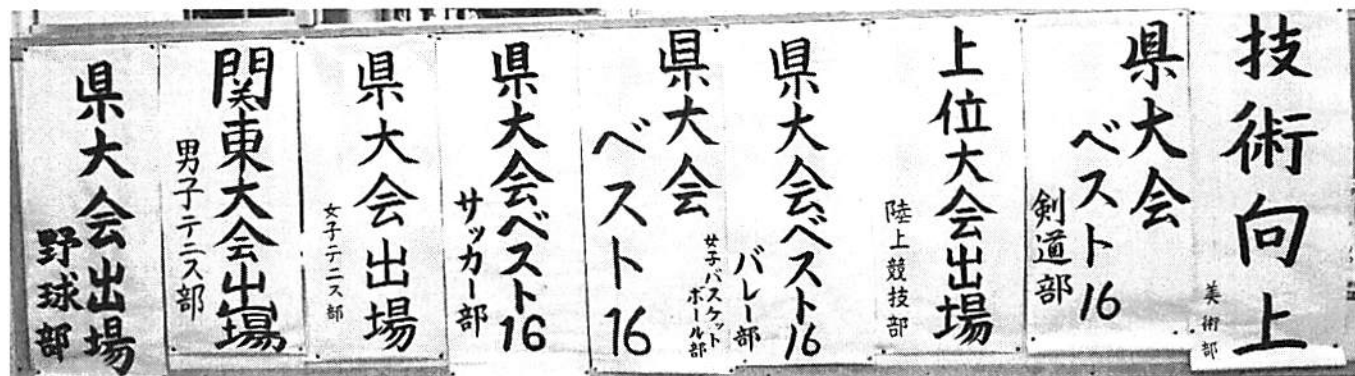 技術向上
美術部
県大会
ベスト16
剣道部
上位大会出場
陸上競技部
県大会ベスト16
バレー部
県大会
ベスト16
女子バスケット
ボール部
県大会ベスト16
サッカー部
県大会出場
女子テニス部
関東大会出場
男子テニス部
県大会出場
野球部